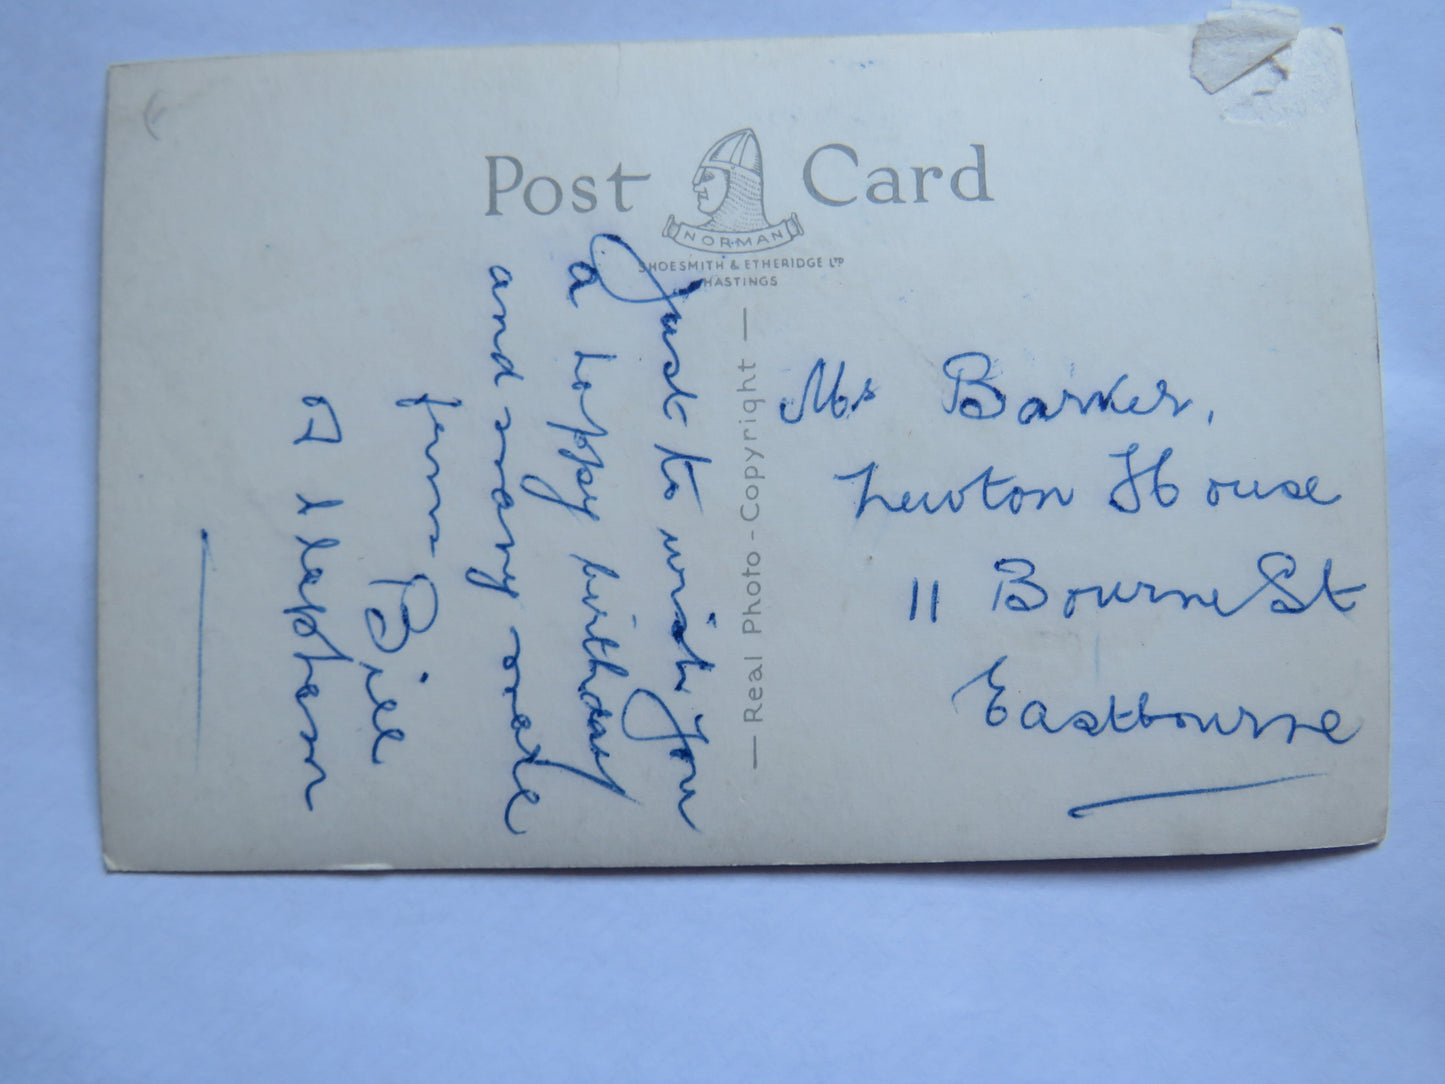 Post Card
NORMAN
SHOESMITH & ETHERIDGE LTD
HASTINGS
— Real Photo - Copyright —
Just to wish you
a happy birthday
and many more
from Bill
Mrs Barker,
Newton House
11 Bourne St
Eastbourne